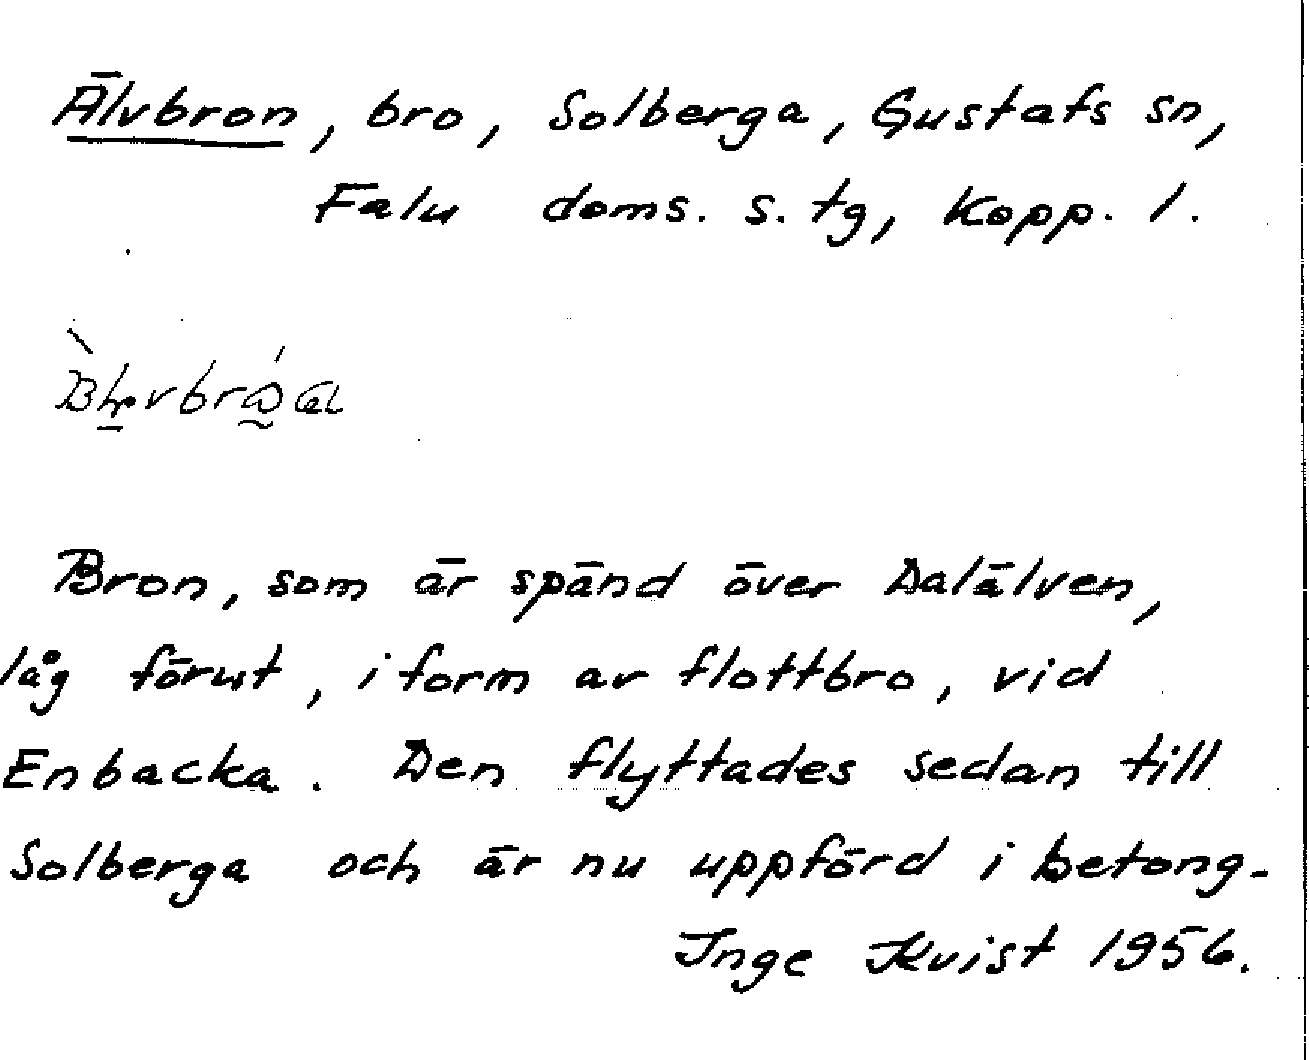 Älvbron, bro, Solberga, Gustafs sn,
Falu doms. s. tg, Kopp. l.
Bron, som är spänd över Dalälven,
låg förut, i form av flottbro, vid
Enbacka. Den flyttades sedan till
Solberga och är nu uppförd i betong-
Inge Kvist 1956.